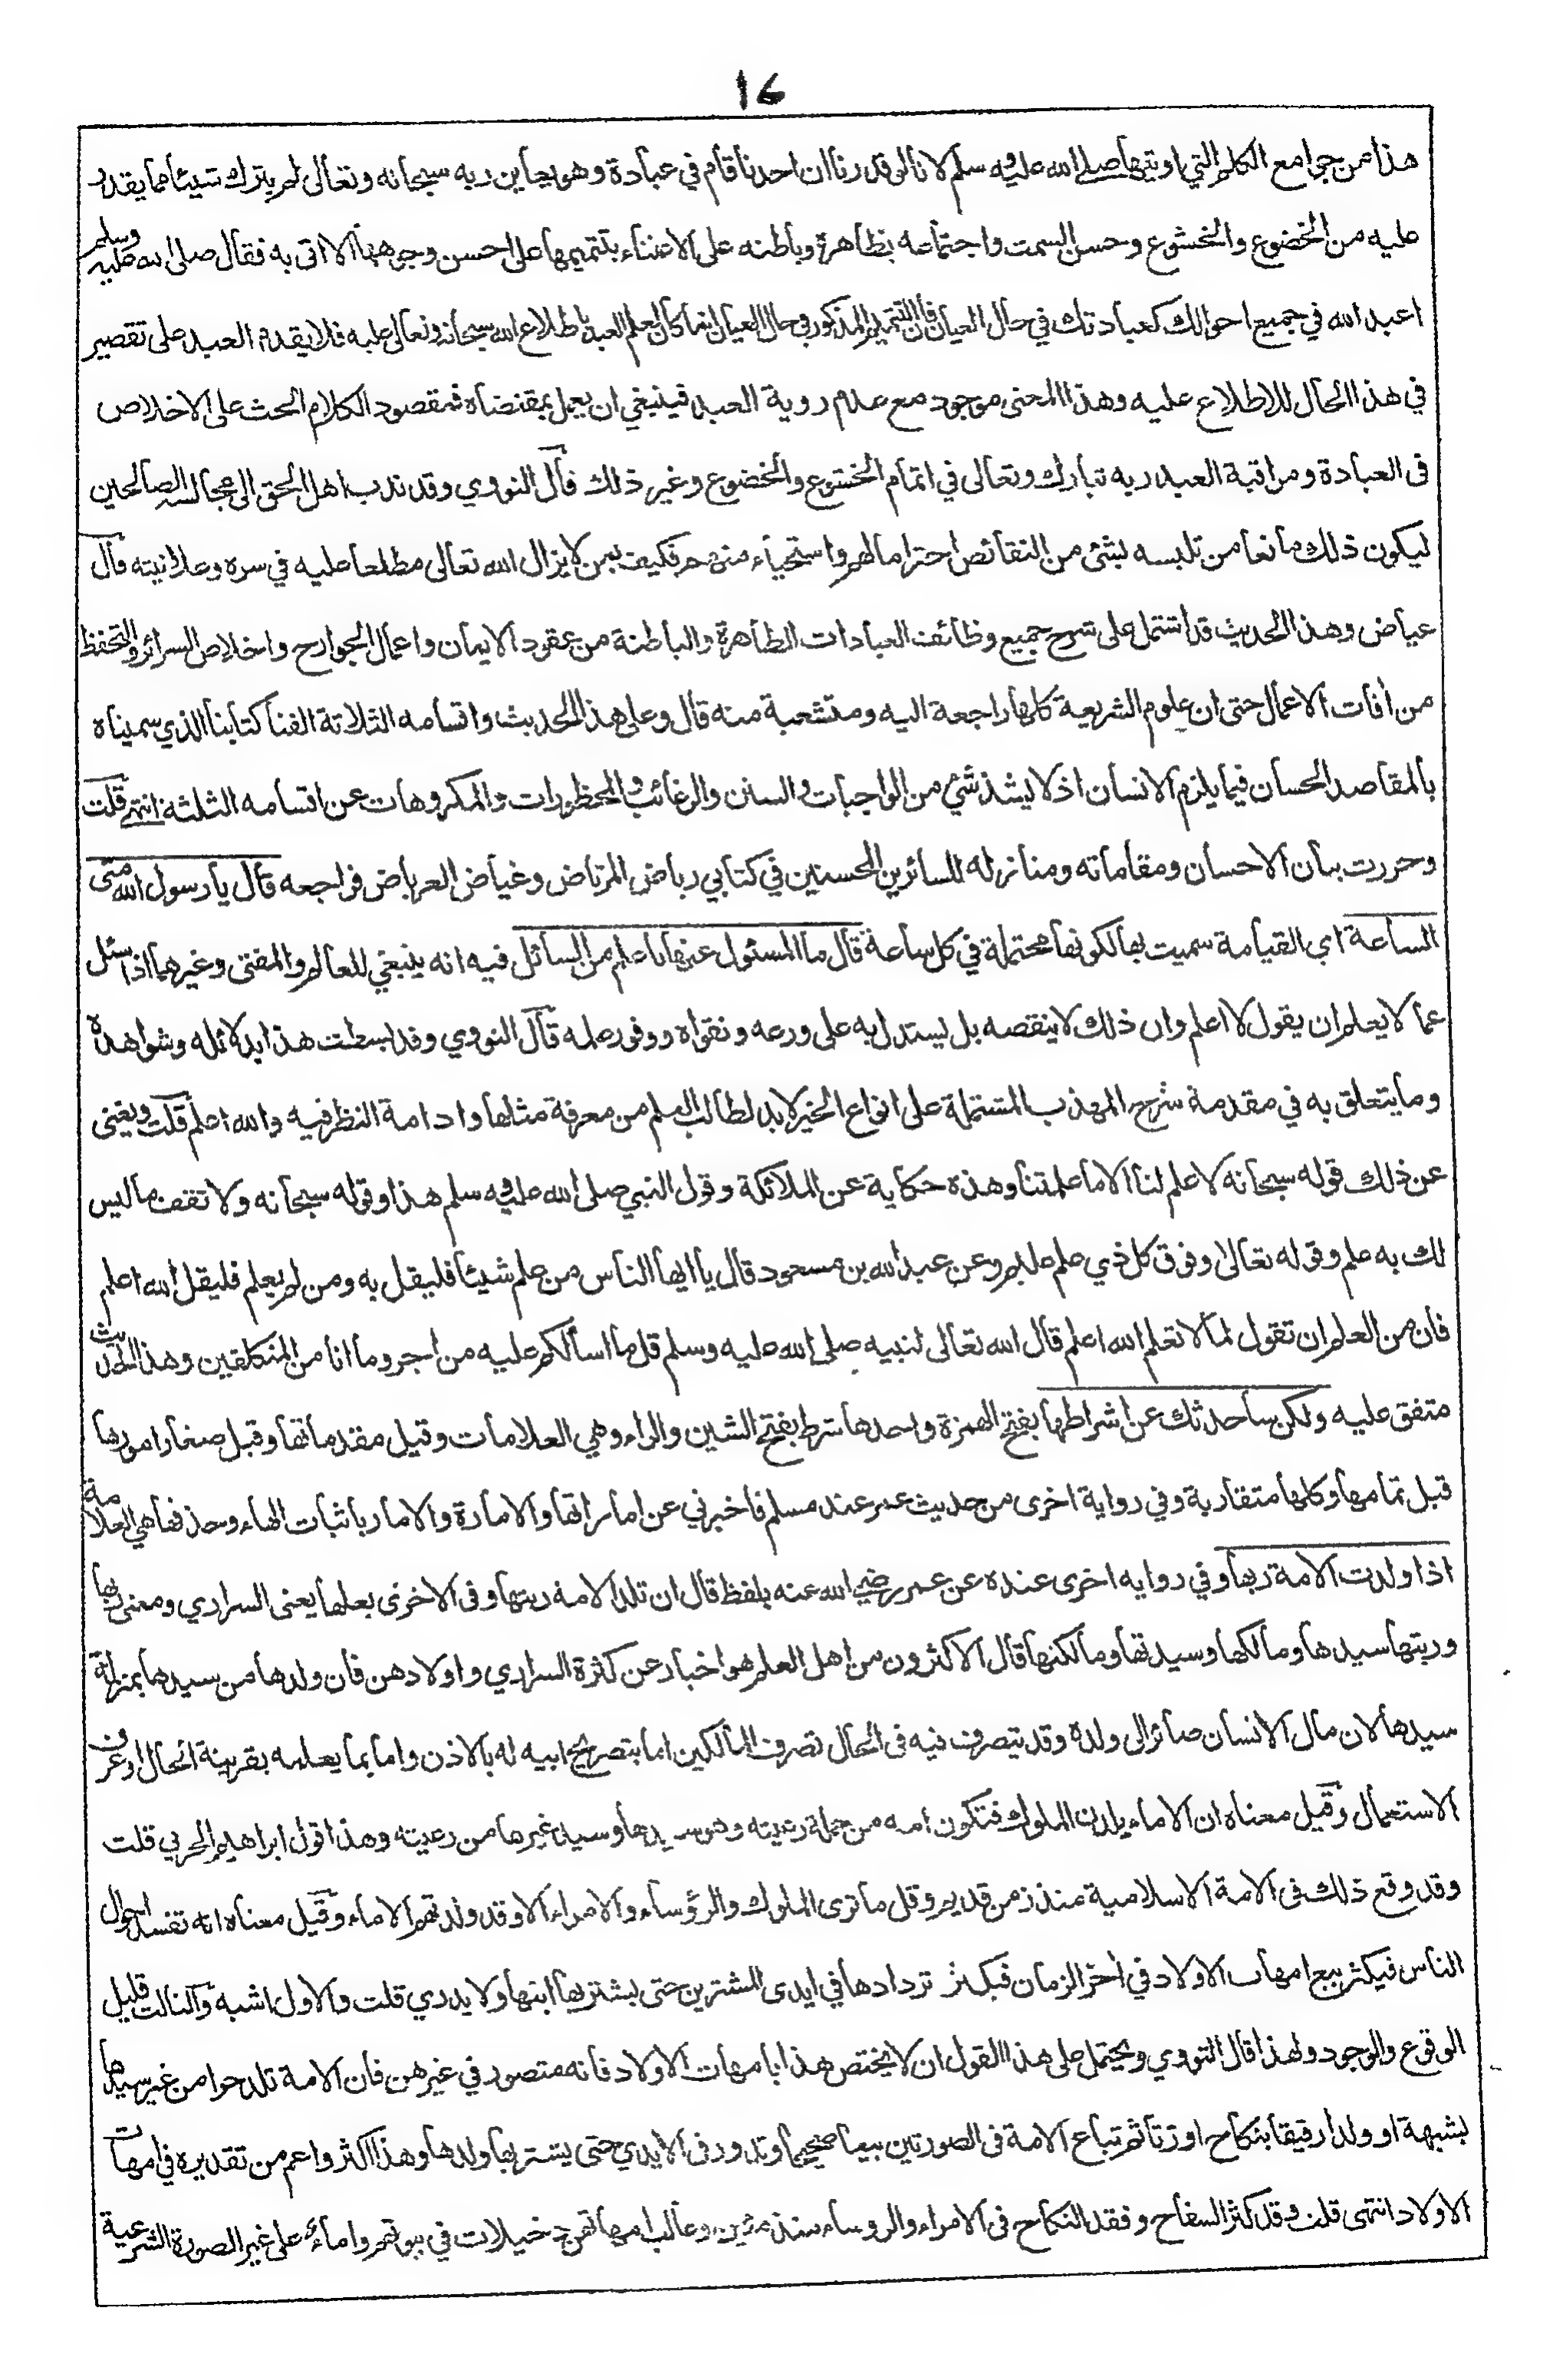 16
هذا من جوامع الكلم التي اوتيها صلى الله عليه وسلم لانا لو قدرنا ان احدنا قام في عبادة وهو يعاين ربه سبحانه وتعالى لم يترك شيئا مما يقدر
عليه من الخضوع والخشوع وحسن السمت واجتماعه بظاهره وباطنه على الاعتناء بتتميمها على احسن وجوهها الا اتى به فقال صلى الله عليه وسلم
اعبد الله في جميع احوالك كعبادتك في حال العيان فان التتميم المذكور في حال العيان انما كان لعلم العبد باطلاع الله سبحانه وتعالى عليه فلا يقدم العبد على تقصير
في هذا الحال للاطلاع عليه وهذا المعنى موجود مع عدم روية العبد فينبغي ان يعمل بمقتضاه فمقصود الكلام الحث على الاخلاص
فى العبادة ومراقبة العبد ربه تبارك وتعالى في اتمام الخشوع والخضوع وغير ذلك قال النووي وقد ندب اهل الحق الى مجالسة الصالحين
ليكون ذلك مانعا من تلبسه بشئ من النقائص احتراما لهم واستحياء منهم فكيف بمن لا يزال الله تعالى مطلعا عليه في سره وعلانيته قال
عياض وهذا الحديث قد اشتمل على شرح جميع وظائف العبادات الظاهرة والباطنة من عقود الايمان واعمال الجوارح واخلاص السرائر والتحفظ
من أفات الاعمال حتى ان علوم الشريعة كلها راجعة اليه ومتشعبة منه قال وعلى هذا الحديث واقسامه الثلاثة الفنا كتابنا الذي سميناه
بالمقاصد الحسان فيما يلزم الانسان اذ لا يشذ شئ من الواجبات والسنن والرغائب والمحظورات والمكروهات عن اقسامه الثلثة انتهى قلت
وحررت بيان الاحسان ومقاماته ومنازله للسائرين المحسنين في كتابي رياض المرتاض وغياض العرباض فراجعه قال يا رسول الله متى
الساعة اي القيامة سميت بها لكونها محتملة في كل ساعة قال ما المسئول عنها باعلم من السائل فيه انه ينبغي للعالم والمفتى وغيرهما اذا سئل
عما لا يعلم ان يقول لا اعلم وان ذلك لا ينقصه بل يستدل به على ورعه وتقواه ووفور علمه قال النووي وقد بسطت هذا بدلائله وشواهده
وما يتعلق به في مقدمة شرح المهذب المشتملة على انواع الخير لا بد لطالب العلم من معرفة مثلها وادامة النظر فيه والله اعلم قلت ويغنى
عن ذلك قوله سبحانه لا علم لنا الا ما علمتنا وهذه حكاية عن الملائكة وقول النبي صلى الله عليه وسلم هذا وقوله سبحانه ولا تقف ما ليس
لك به علم وقوله تعالى وفوق كل ذي علم عليم وعن عبد الله بن مسعود قال يا ايها الناس من علم شيئا فليقل به ومن لم يعلم فليقل الله اعلم
فان من العلم ان تقول لما لا تعلم الله اعلم قال الله تعالى لنبيه صلى الله عليه وسلم قل ما اسألكم عليه من اجر وما انا من المتكلفين وهذا الحديث
متفق عليه ولكن ساحدثك عن اشراطها بفتح الهمزة واحدها شرط بفتح الشين والراء وهي العلامات وقيل مقدماتها وقيل صغار امورها
قبل تمامها وكلها متقاربة وفي رواية اخرى من حديث عمر عند مسلم فاخبرني عن اماراتها والامارة والامار باثبات الهاء وحذفها هي العلامة
اذا ولدت الامة ربها وفي روايه اخرى عنده عن عمر رضي الله عنه بلفظ قال ان تلد الامة ربتها وفى الاخرى بعلها يعنى السراري ومعنى ربها
وربتها سيدها ومالكها وسيدتها ومالكتها قال الاكثرون من اهل العلم هو اخبار عن كثرة السراري واولادهن فان ولدها من سيدها بمنزلة
سيدها لان مال الانسان صائر الى ولده وقد يتصرف فيه فى الحال تصرف المالكين اما بتصريح ابيه له بالاذن واما بما يعلمه بقرينة الحال او عرف
الاستعمال وقيل معناه ان الاماء يلدن الملوك فتكون امه من جملة رعيته وهو سيدها وسيد غيرها من رعيته وهذا قول ابراهيم الحربي قلت
وقد وقع ذلك فى الامة الاسلامية منذ زمن قديم وقل ما ترى الملوك والرؤساء والامراء الا وقد ولدتهم الاماء وقيل معناه انه تفسد احوال
الناس فيكثر بيع امهات الاولاد في أخر الزمان فيكثر تردادها في ايدى المشترين حتى يشتريها ابنها ولا يدري قلت والاول اشبه والثالث قليل
الوقوع والوجود ولهذا قال النووي ويحتمل على هذا القول ان لا يختص هذا بامهات الاولاد فانه متصور في غيرهن فان الامة تلد حرا من غير سيدها
بشبهة او ولدا رقيقا بنكاح او زنا ثم تباع الامة فى الصورتين بيعا صحيحا وتدور فى الايدي حتى يشتريها ولدها وهذا اكثر واعم من تقديره في امهات
الاولاد انتهى قلت وقد كثر السفاح وفقد النكاح فى الامراء والروساء منذ مئين وغالب امهاتهم دخيلات في بيوتهم واماء على غير الصورة الشرعية